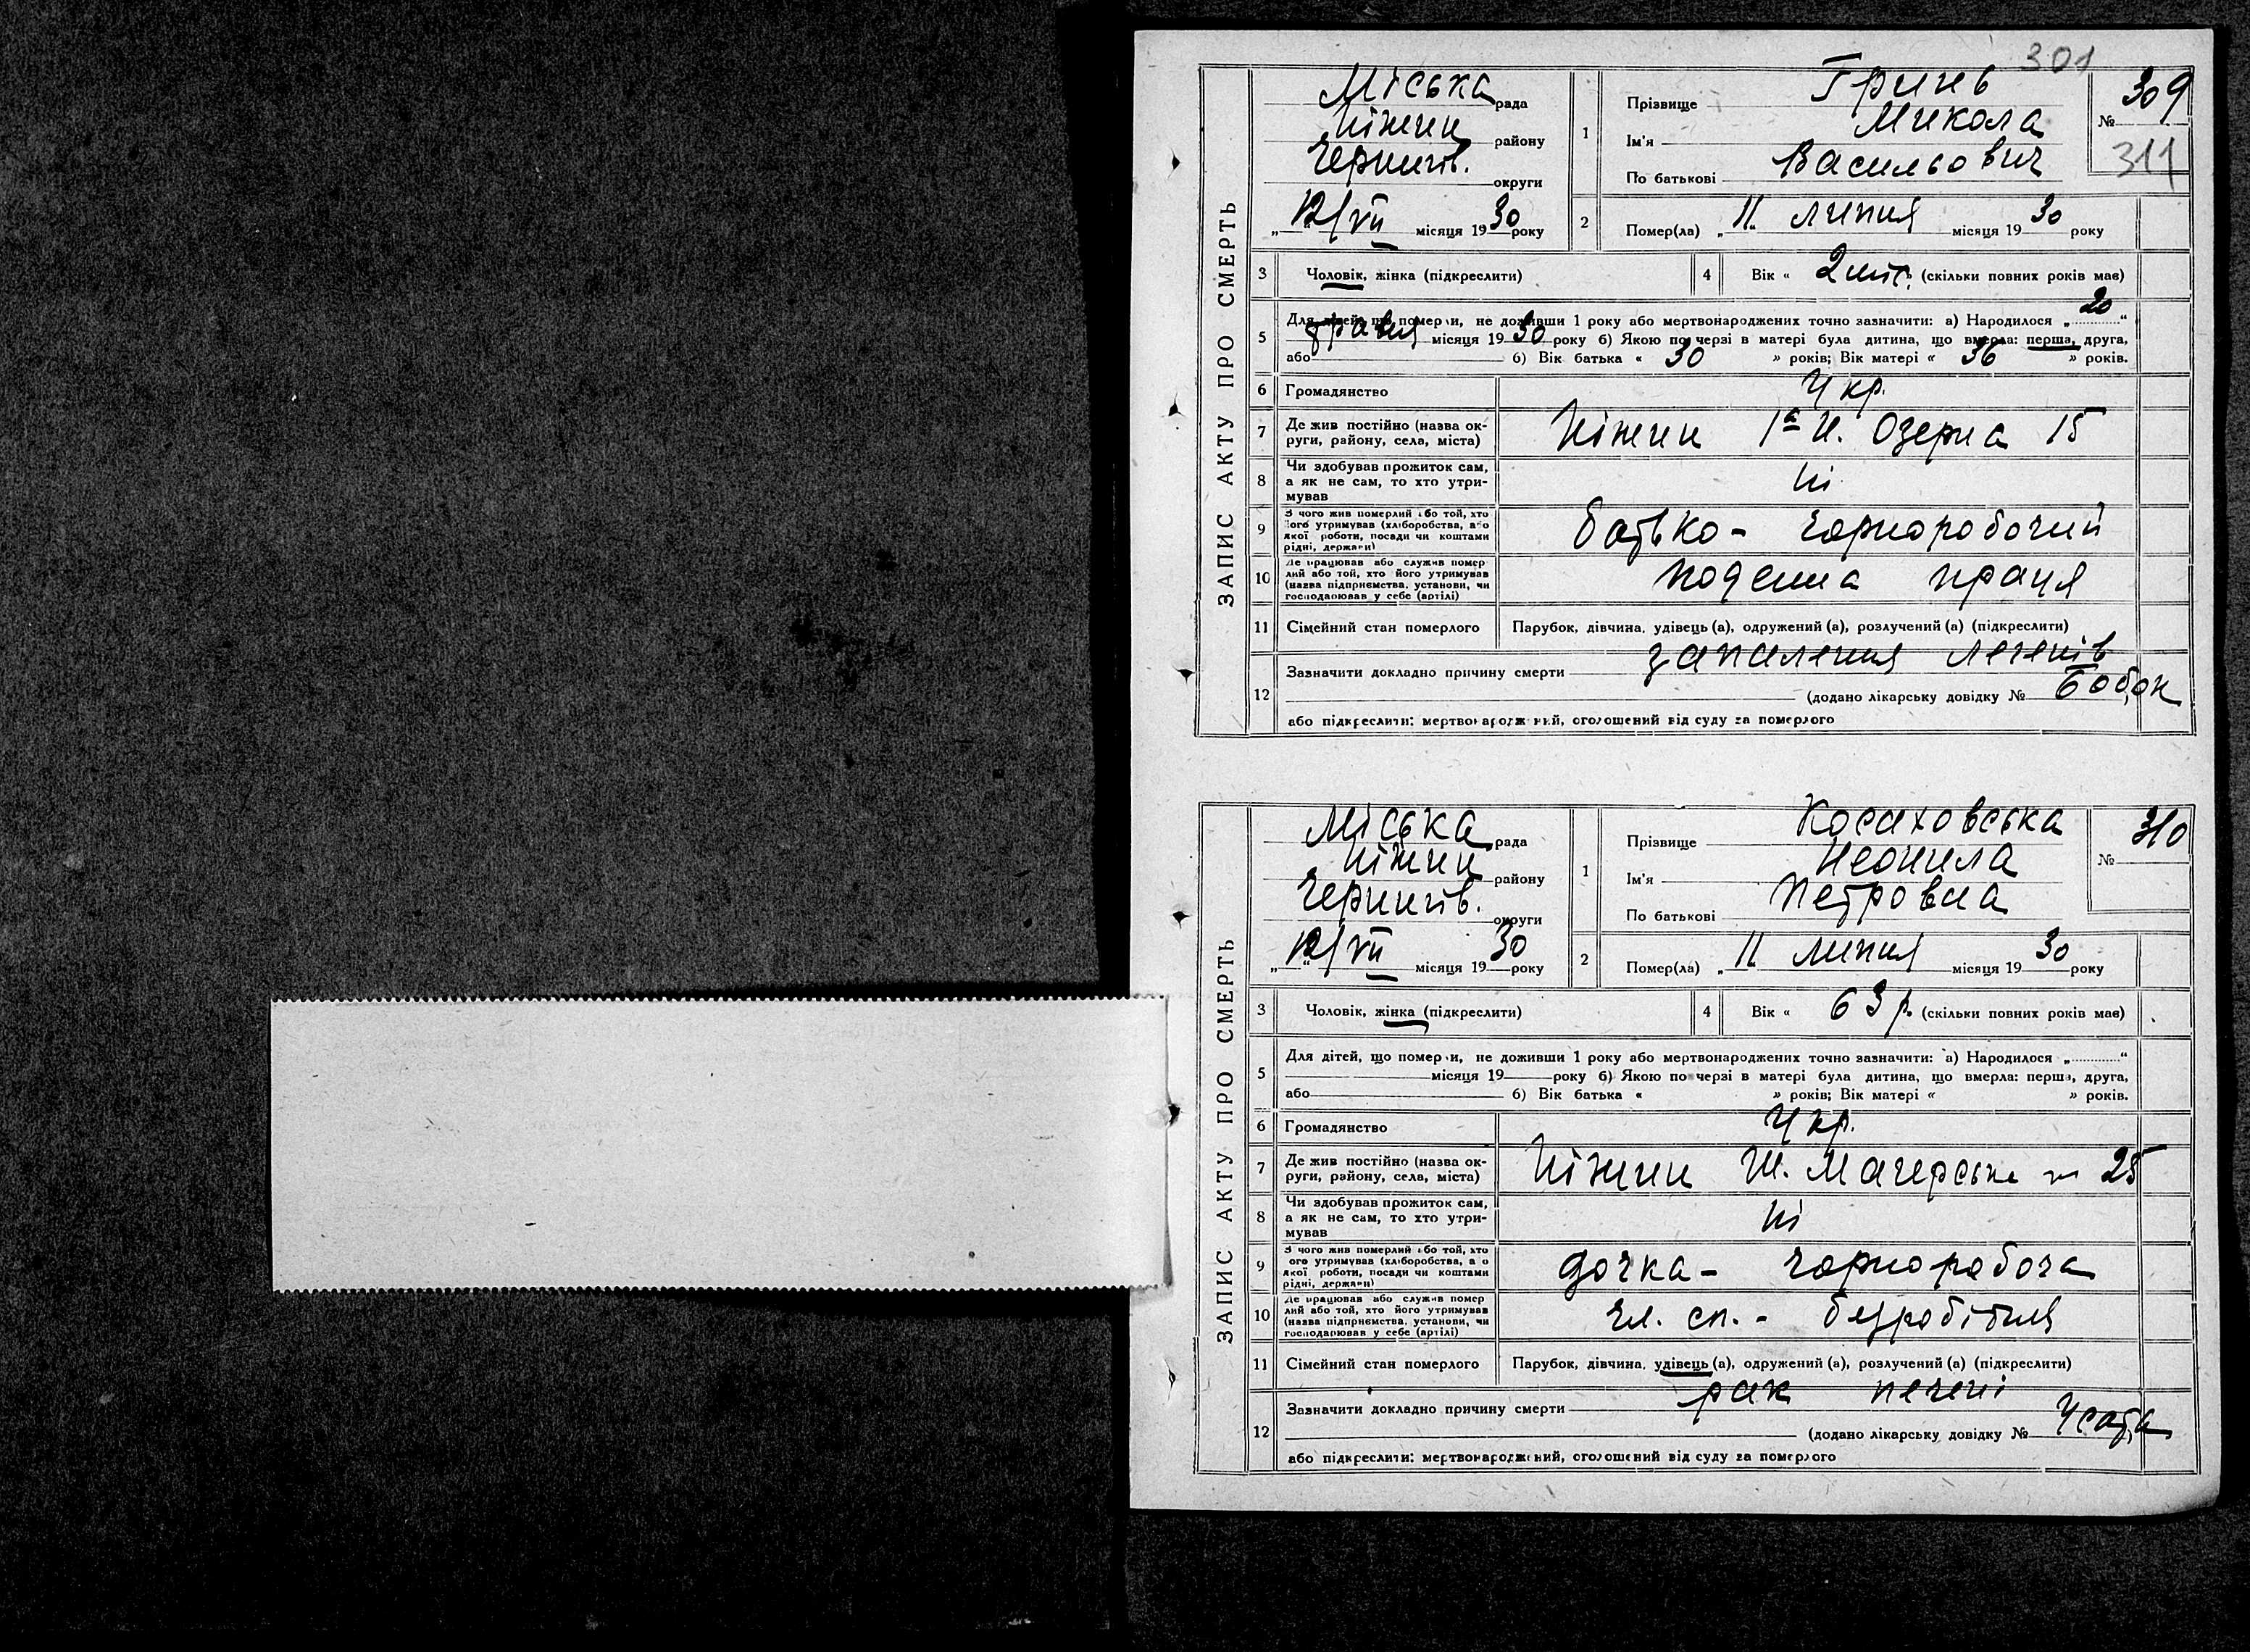 301
ЗАПИС АКТУ ПРО СМЕРТЬ
Міська рада
Ніжин району
Чернигів. округи
12/VII місяця 1930 року
1
Прізвище Гринь
Ім'я Микола
По батькові Васильович
№ 309
311
2 Помер(ла) „11. липня місяця 1930 року
3 Чоловік, жінка (підкреслити)
4 Вік « 2 міс. » (скільки повних років має)
5 Для дітей, що померли, не доживши 1 року або мертвонароджених точно зазначити: а) Народилося „20“
травня місяця 1930 року б) Якою по черзі в матері була дитина, що вмерла: перша, друга,
або б) Вік батька « 30 » років; Вік матері « 36 » років.
6 Громадянство Укр.
7 Де жив постійно (назва округи, району, села, міста) Ніжин 1а Н. Озерна 15
8 Чи здобував прожиток сам,
а як не сам, то хто утри-
мував Ні
9 З чого жив померлий або той, хто
його утримував (хліборобства, або
якої роботи, посади чи коштами
рідні, держави) батько - чорноробочий
10 Де працював або служив помер
лий або той, хто його утримував
(назва підприємства, установи, чи
господарював у себе (артілі) поденна праця
11 Сімейний стан померлого Парубок, дівчина, удівець (а), одружений (а), розлучений (а) (підкреслити)
12 Зазначити докладно причину смерти запалення легенів
(додано лікарську довідку № Бобок
або підкреслити: мертвонароджений, оголошений від суду за померлого
ЗАПИС АКТУ ПРО СМЕРТЬ
Міська рада
Ніжин району
Чернигів. округи
12/VII місяця 1930 року
1
Прізвище Косаховська
Ім'я Неонила
По батькові Петровна
№ 310
2 Помер(ла) „11 липня місяця 1930 року
3 Чоловік, жінка (підкреслити)
4 Вік « 63 р. (скільки повних років має)
5 Для дітей, що померли, не доживши 1 року або мертвонароджених точно зазначити: а) Народилося „ “
місяця 19 року б) Якою по черзі в матері була дитина, що вмерла: перша, друга,
або б) Вік батька « » років; Вік матері « » років.
6 Громадянство Укр.
7 Де жив постійно (назва округи, району, села, міста) Ніжин Ш. Магерськ 25
8 Чи здобував прожиток сам,
а як не сам, то хто утри-
мував Ні
9 З чого жив померлий або той, хто
його утримував (хліборобства, або
якої роботи, посади чи коштами
рідні, держави) дочка - чорноробоча
10 Де працював або служив помер
лий або той, хто його утримував
(назва підприємства, установи, чи
господарював у себе (артілі) чл. сп. - безробітня
11 Сімейний стан померлого Парубок, дівчина, удівець (а), одружений (а), розлучений (а) (підкреслити)
12 Зазначити докладно причину смерти рак печені
(додано лікарську довідку № Усата
або підкреслити: мертвонароджений, оголошений від суду за померлого